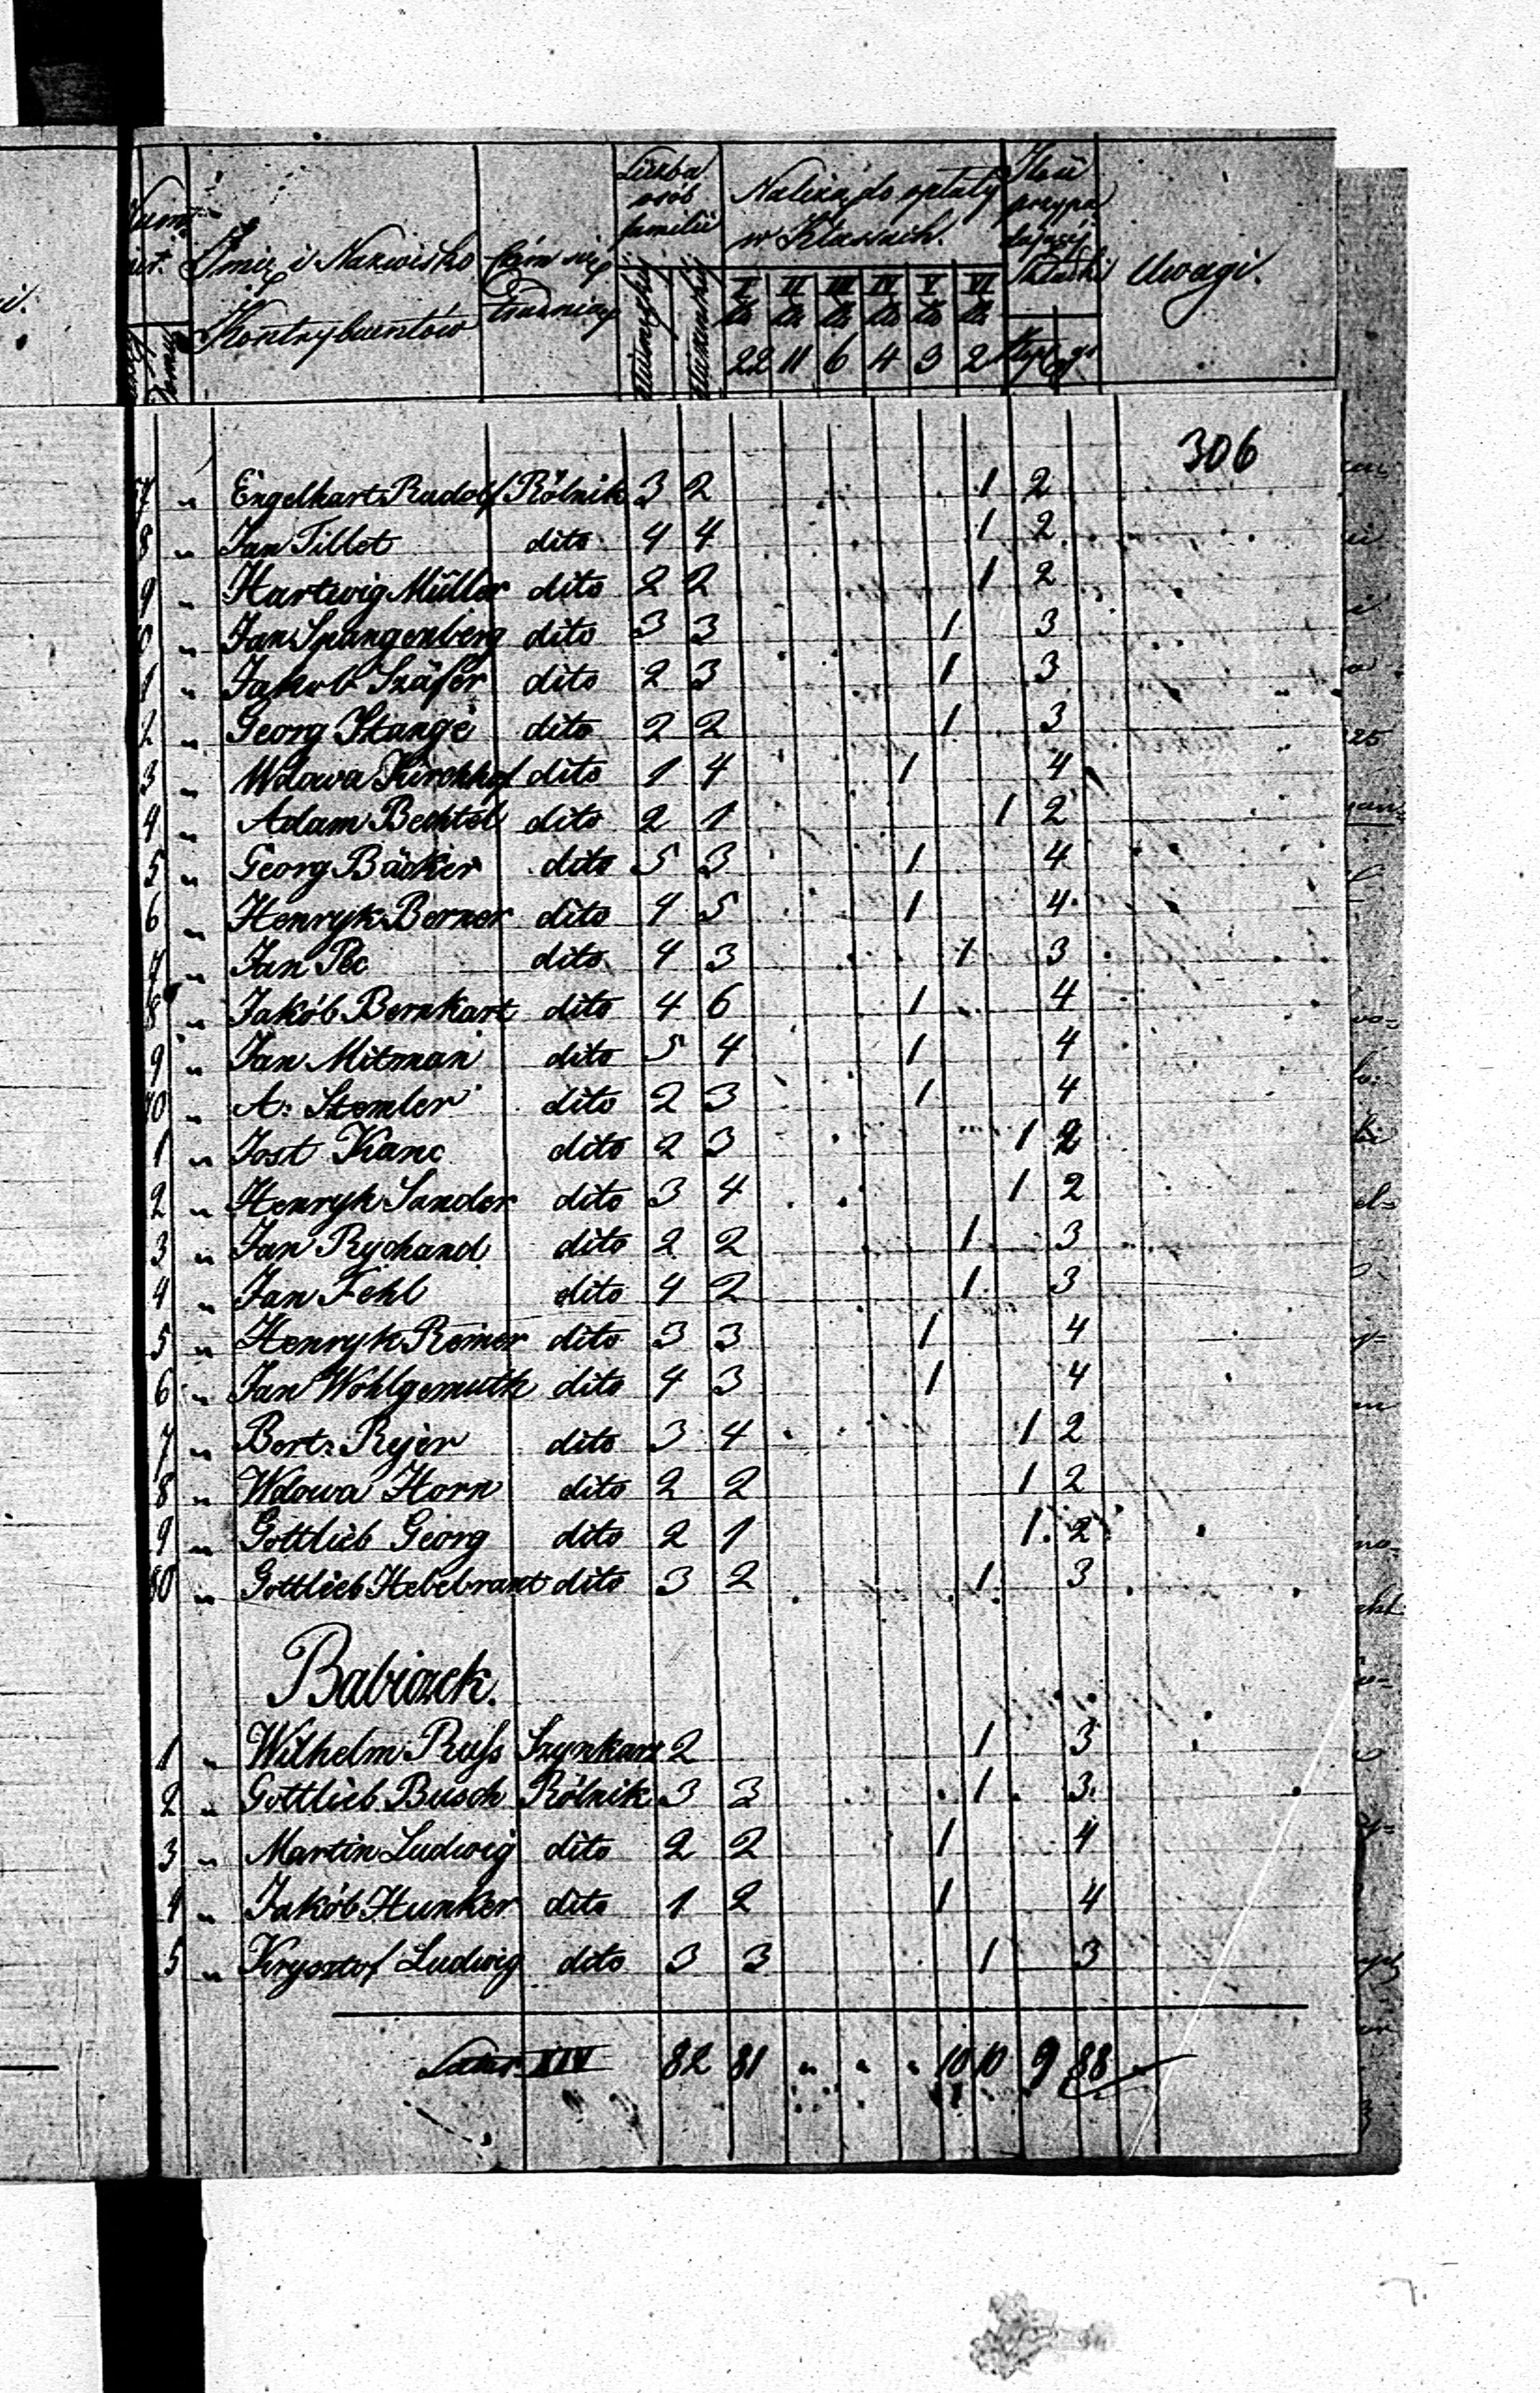 Imię i Nazwisko
Kontrybuentów
Czém się
Trudnią
Liczba
osób
familii
Należą do opłaty
w Klassach.
Uwagi.
I II III IV V VI
22 11 6 4 3 2
306
57 " Engelhart Rudolf Rólnik 3 2 1 2
8 " Jan Tillet dito 4 4 1 2
9 " Hartwig Müller dito 2 2 1 2
0 " Jan Spangenberg dito 3 3 1 3
1 " Jakob Szäfer dito 2 3 1 3
2 " Georg Stange dito 2 2 1 3
3 " Wdowa Kirchhof dito 1 4 1 4
4 " Adam Bechtel dito 2 1 1 2
5 " Georg Bäcker dito 5 3 1 4
6 " Henryk Berner dito 4 5 1 4
7 " Jan Pec dito 4 3 1 3
8 " Jakób Bernkart dito 4 6 1 4
9 " Jan Mitman dito 5 4 1 4
70 " A: Stemler dito 2 3 1 4
1 " Jost Kanc dito 2 3 1 2
2 " Henryk Sander dito 3 4 1 2
3 " Jan Rychand dito 2 2 1 3
4 " Jan Fehl dito 4 2 1 3
5 " Henryk Reiner dito 3 3 1 4
6 " Jan Wohlgemuth dito 4 3 1 4
7 " Bert: Rejer dito 3 4 1 2
8 " Wdowa Horn dito 2 2 1 2
9 " Gottlieb Georg dito 2 1 1 2
80 " Gottlieb Hebebrant dito 3 2 1 3
Babiczek.
1 " Wilhelm Russ Szynkarz 2 1 3
2 " Gottlieb Busch Rólnik 3 3 1 3
3 " Martin Ludwig dito 2 2 1 4
4 " Jakób Hunker dito 1 2 1 4
5 " Krysztof Ludwig dito 3 3 1 3
Latus XIV 82 81 " " " 10 10 9 88